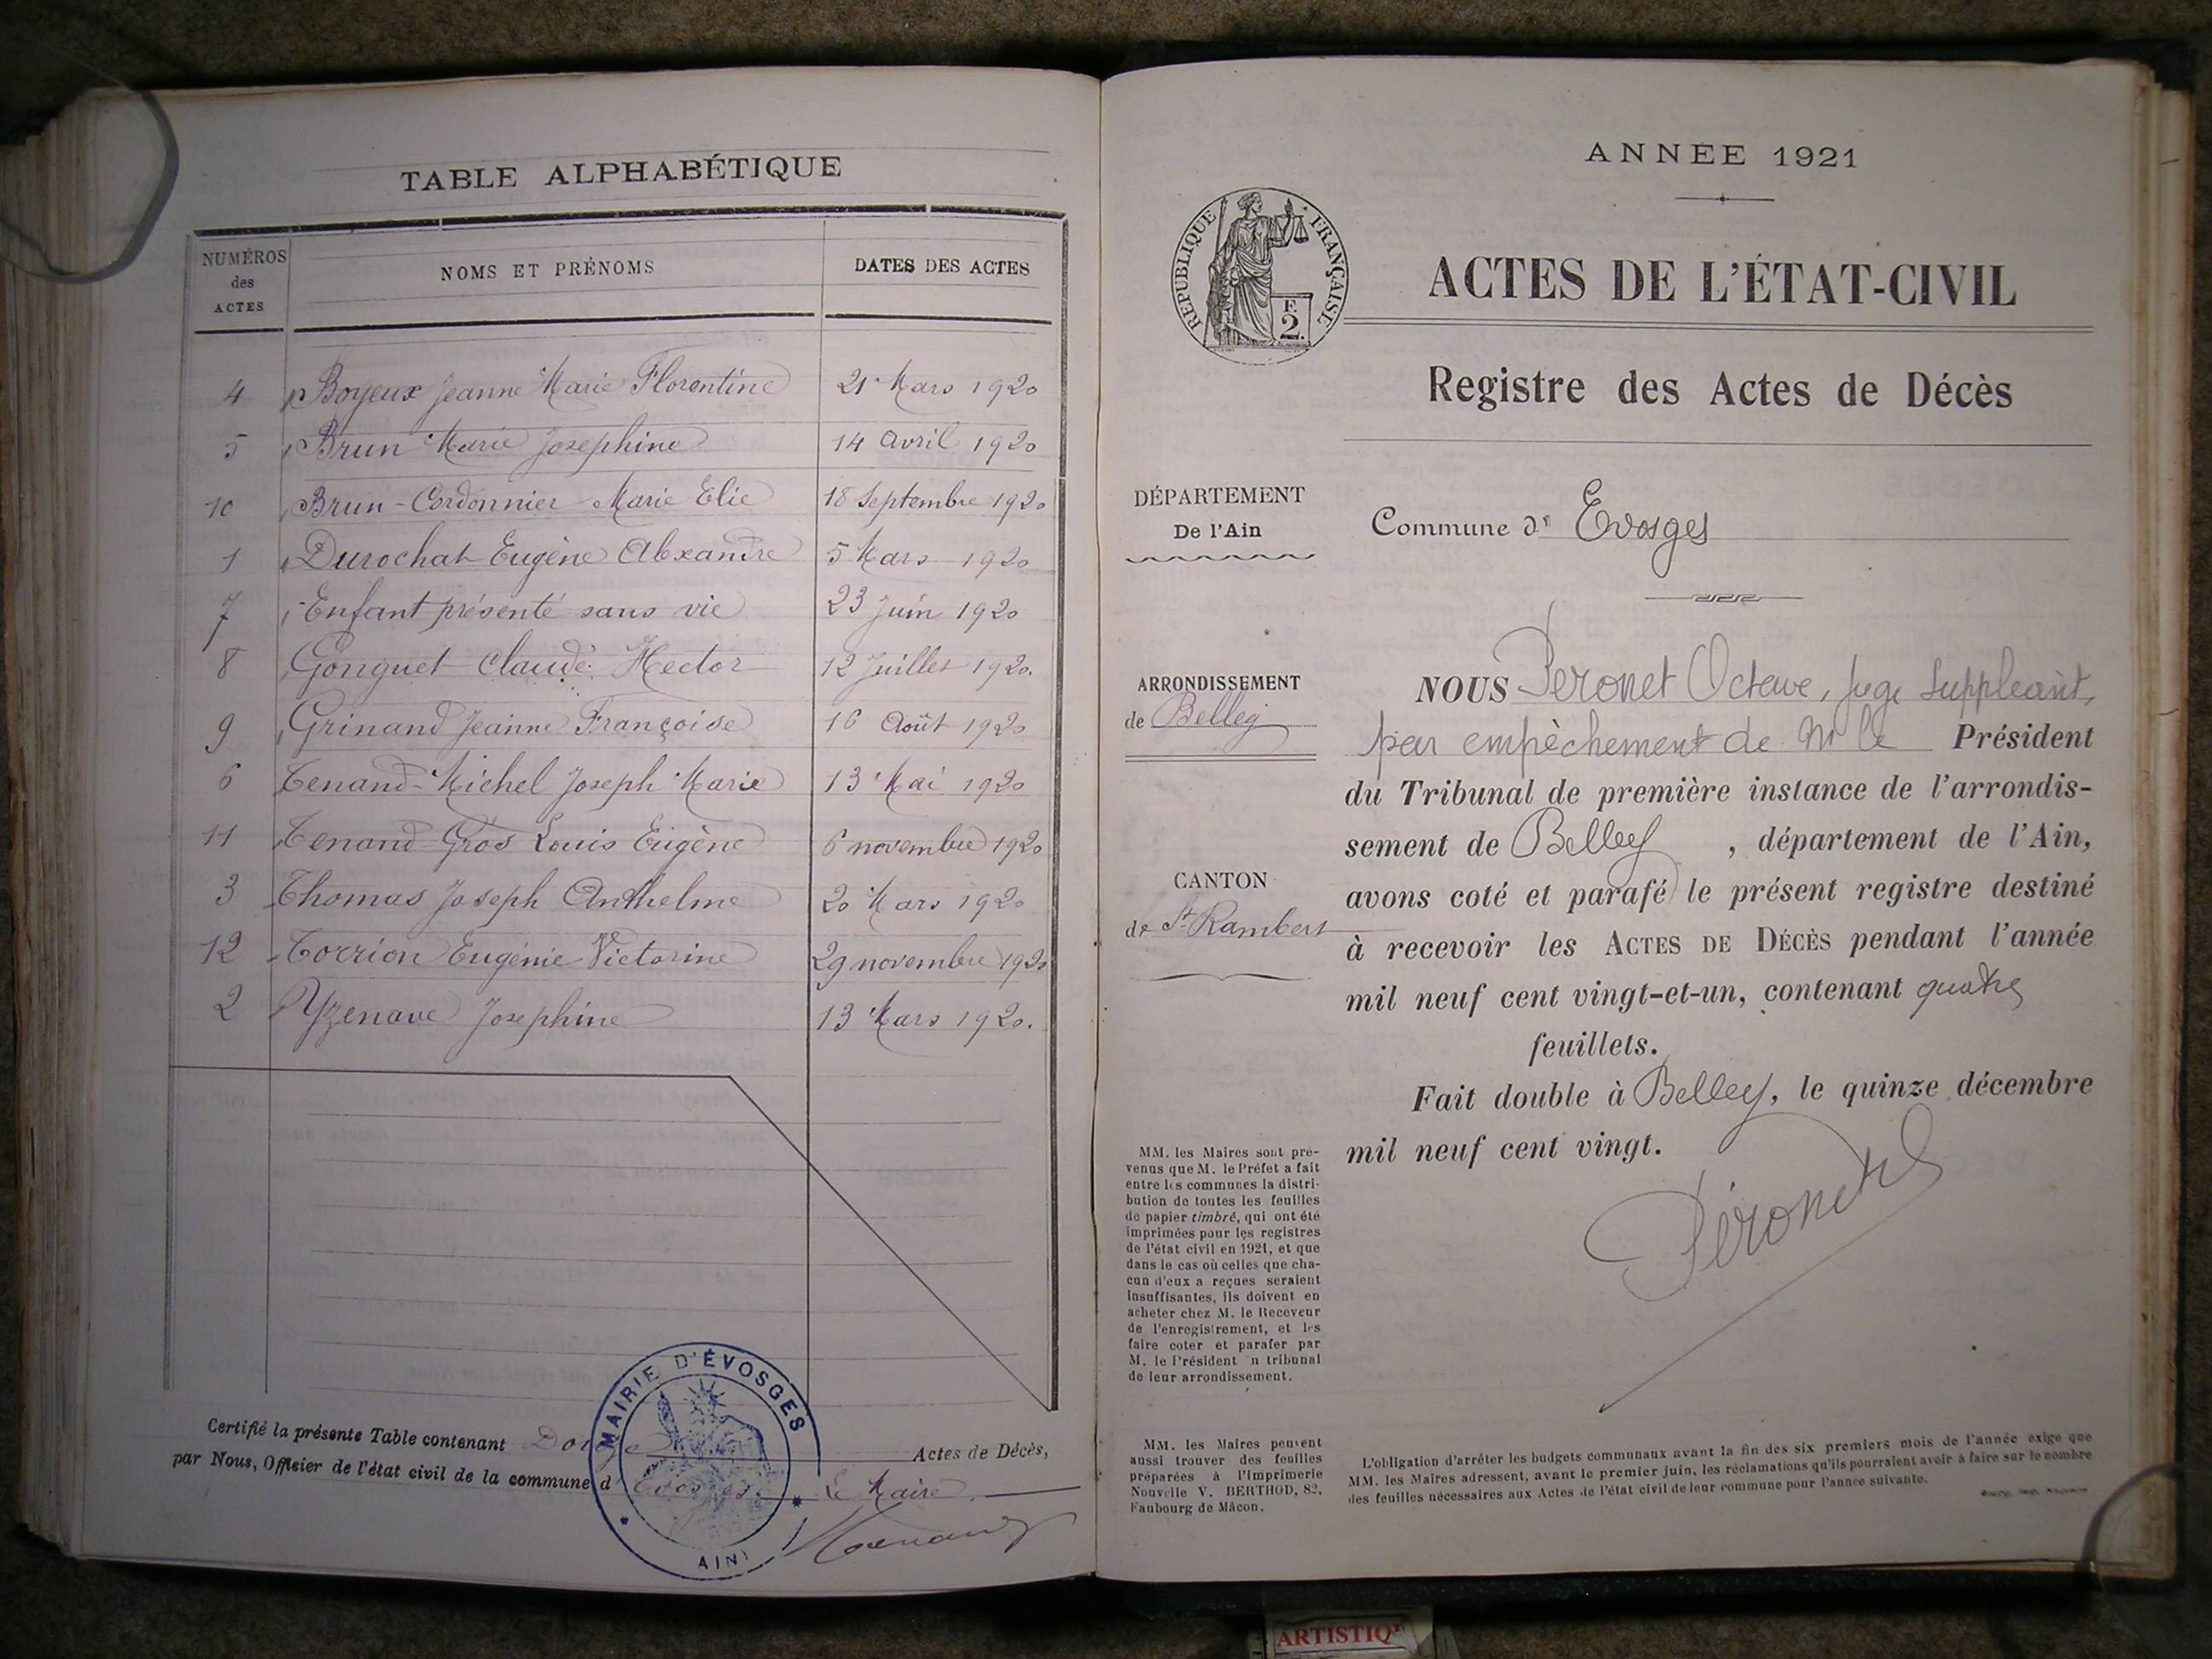 TABLE ALPHABÉTIQUE
NUMÉROS des ACTES NOMS ET PRÉNOMS DATES DES ACTES
4 Boyeux Jeanne Marie Florentine 21 Mars 1920
5 Brun Marie Josephine 14 Avril 1920
10 Brun-Cordonnier Marie Elie 18 Septembre 1920
1 Durochat Eugène Alexandre 5 Mars 1920
7 Enfant présenté sans vie 23 Juin 1920
8 Gonguet Claude Hector 12 Juillet 1920.
9 Grinand Jeanne Françoise 16 Août 1920
6 Tenand-Michel Joseph Marie 13 Mai 1920
11 Tenand-Gros Louis Eugène 6 novembre 1920
3 Thomas Joseph Anthelme 20 Mars 1920
12 Torrion Eugénie Victorine 29 novembre 1920
2 Yzenave Josephine 13 Mars 1920.
Certifié la présente Table contenant Douze Actes de Décès,
par Nous, Officier de l'état civil de la commune d' Evosges Le Maire
Tenand
MAIRIE D'ÉVOSGES
AIN
ANNÉE 1921
RÉPUBLIQUE FRANÇAISE
F. 2.
ACTES DE L'ÉTAT-CIVIL
Registre des Actes de Décès
DÉPARTEMENT
De l'Ain
Commune d' Evosges
ARRONDISSEMENT
de Belley
CANTON
de St Rambert
NOUS Peronet Octave, juge suppleant,
par empêchement de Mr le Président
du Tribunal de première instance de l'arrondis-
sement de Belley, département de l'Ain,
avons coté et parafé le présent registre destiné
à recevoir les ACTES DE DÉCÈS pendant l'année
mil neuf cent vingt-et-un, contenant quatre
feuillets.
Fait double à Belley, le quinze décembre
mil neuf cent vingt.
Péronet
MM. les Maires sont pré-
venus que M. le Préfet a fait
entre les communes la distri-
bution de toutes les feuilles
de papier timbré, qui ont été
imprimées pour les registres
de l'état civil en 1921, et que
dans le cas où celles que cha-
cun d'eux a reçues seraient
insuffisantes, ils doivent en
acheter chez M. le Receveur
de l'enregistrement, et les
faire coter et parafer par
M. le Président n tribunal
de leur arrondissement.
MM. les Maires peuvent
aussi trouver des feuilles
préparées à l'Imprimerie
Nouvelle V. BERTHOD, 82,
Faubourg de Mâcon.
L'obligation d'arrêter les budgets communaux avant la fin des six premiers mois de l'année exige que
MM. les Maires adressent, avant le premier juin, les réclamations qu'ils pourraient avoir à faire sur le nombre
des feuilles nécessaires aux Actes de l'état civil de leur commune pour l'année suivante.
ARTISTIQ